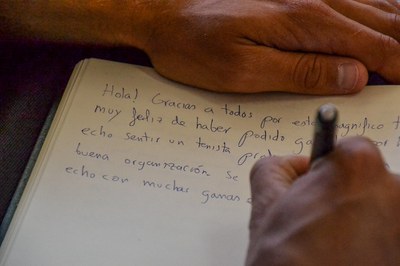 Hola! Gracias a todos por este magnifico t
muy feliz de haber podido ga
echo sentir un tenista pro
buena organización se
echo con muchas ganas